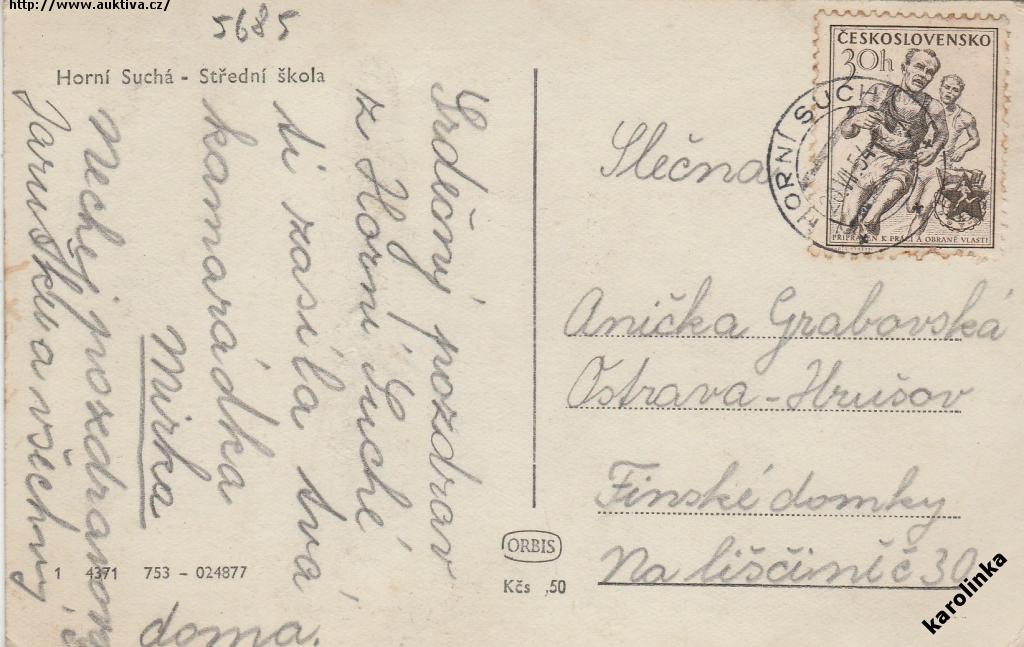 http://www.auktiva.cz/
5685
Horní Suchá - Střední škola
Srdečný pozdrav
z Horní Suché
ti zasílá tvá
kamarádka
Mirka
Nechej pozdravova
Jarušku a všechny
doma.
1 4371 753 - 024877
ORBIS
Kčs ,50
ČESKOSLOVENSKO
30h
PŘIPRAVEN K PRÁCI A OBRANĚ VLASTI
HORNÍ SUCHÁ
Slečna
Anička Grabovská
Ostrava - Hrušov
Finské domky
Na liščině č 30
karolinka